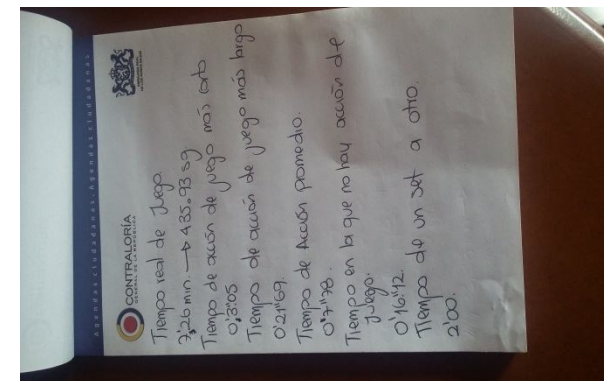 Agendas ciudadanas. Agendas ciudadanas
CONTRALORÍA
GENERAL DE LA REPÚBLICA
Tiempo real de Juego.
7,26 min. → 435.93 sg
Tiempo de acción de juego más corto
0'3"05
Tiempo de acción de juego más largo
0'21"69.
Tiempo de Acción promedio.
0'7"78.
Tiempo en la que no hay acción de
juego.
0'16"12.
Tiempo de un set a otro.
2'00.